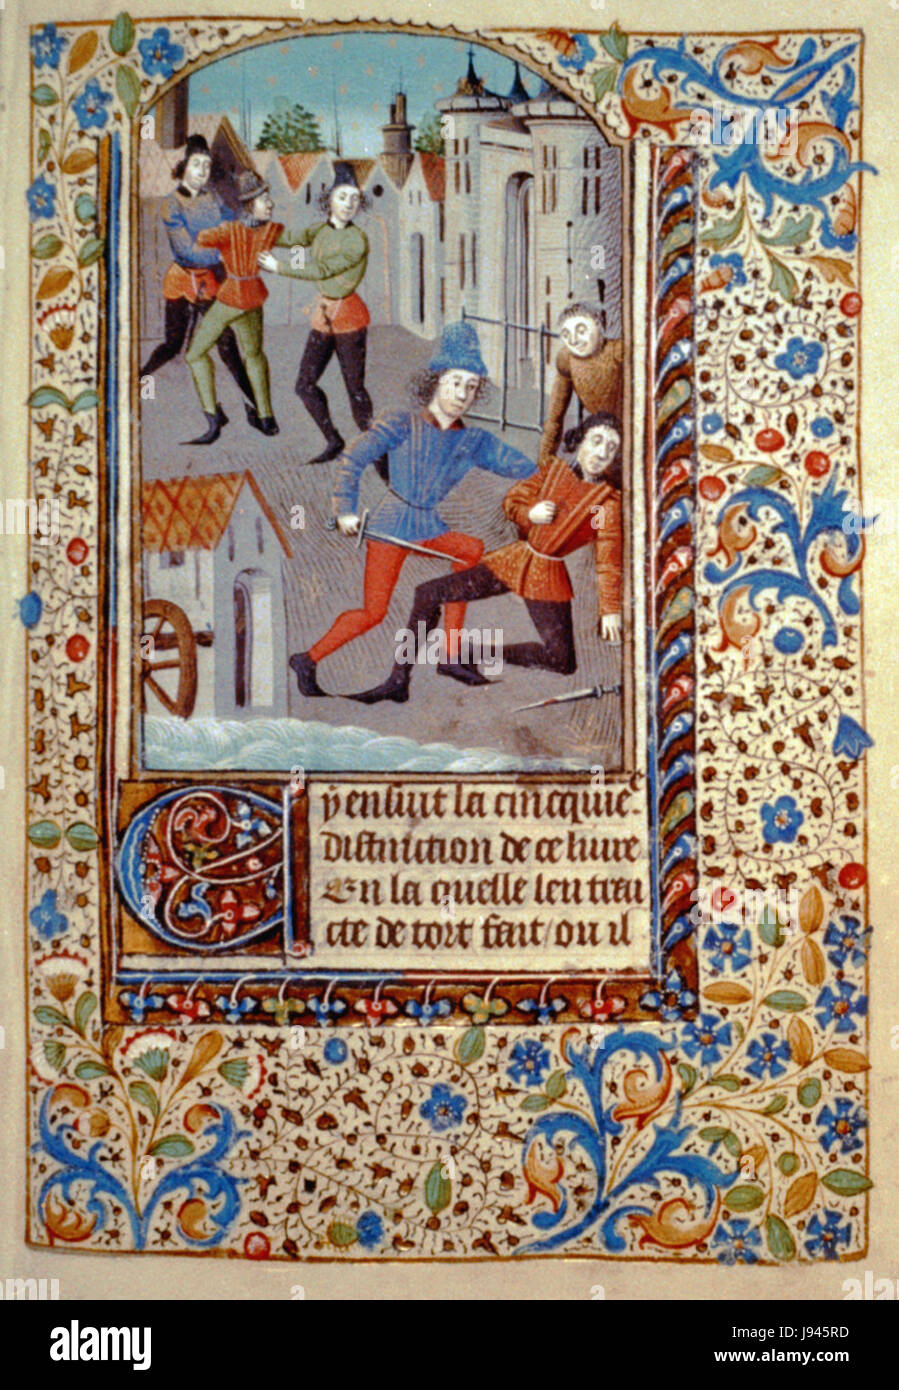 Cy ensuit la cincquie
Distinction de ce livre
En la quelle len trai
cte de tort fait / ou il
alamy
Image ID: J945RD
www.alamy.com